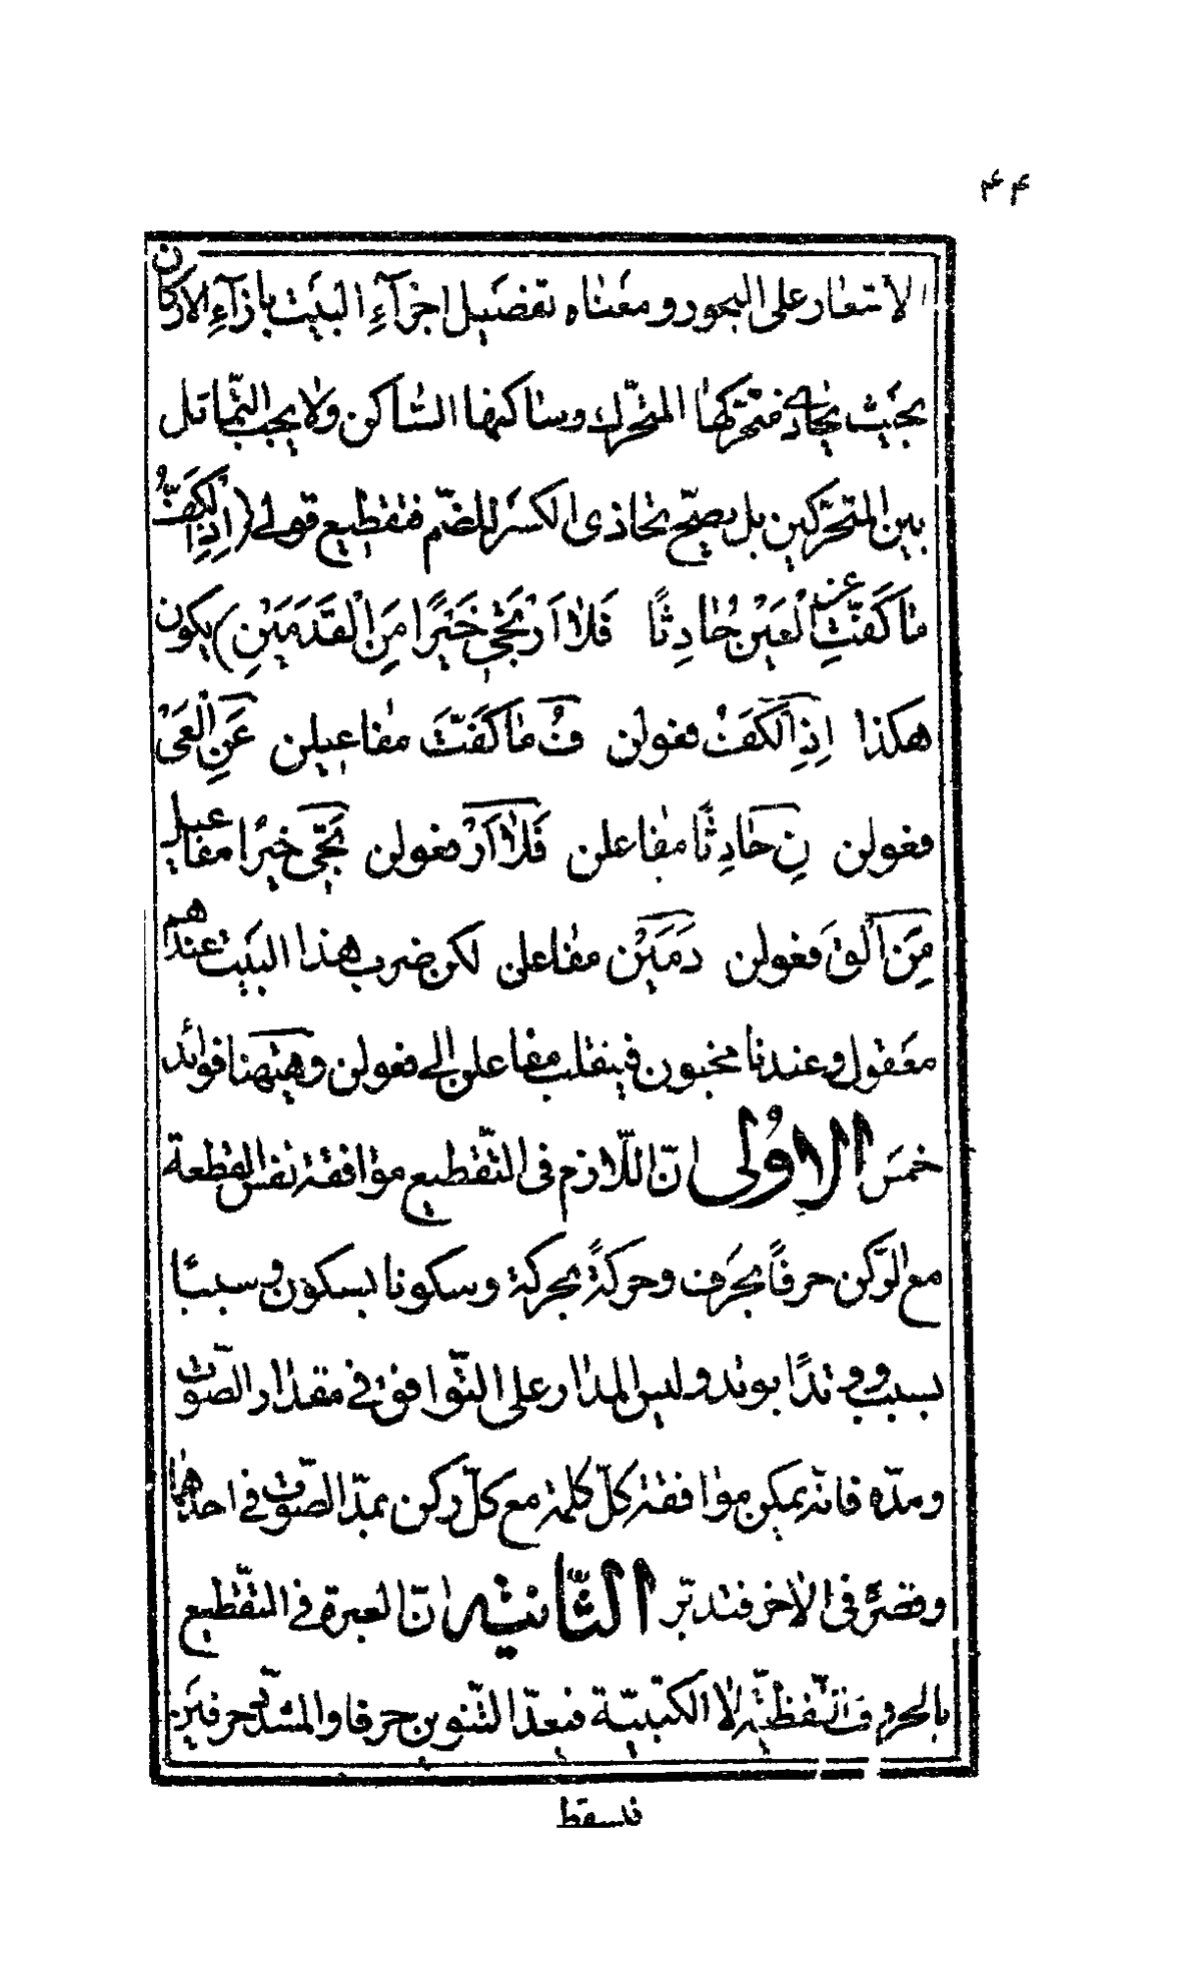 ۴۴
الاشعار على البحور و معناه تفصيل اجزآءِ البيت بازآءِ الاركان
بحيث يحاذي متحرّكها المتحرّك وساكنها السّاكن ولا يجب التّماثل
بين المتحرّكين بل يصحّ تحاذى الكسر للضمّ فتقطيع قولي (اِذِ الْكَفُّ
مَا كَفَّتْ عَنِ الْعَيْنِ حَادِثًا فَلَا اَرْتَجِي خَيْرًا مِنَ الْقَدَمَيْنِ) يكون
هكذا اِذِ الْكَفْ فعولن فُ مَا كَفَّتَ مفاعيلن عَنِ الْعَيْ
فعولن نِ حَادِثًا مفاعلن فَلَا اَرْ فعولن تَجِي خيرًا مفاعيلن
مِنَ الْقَ فعولن دَمَيْن مفاعلن لكن ضرب هذا البيت عندهم
معقول وعندنا مخبون فينقلب مفاعلن الى فعولن وهيهنا فوائد
خمس الاُولى انّ اللّازم فى التّقطيع موافقة نفس القطعة
مع الرّكن حرفًا بحرف وحركةً بحركة وسكونا بسكون و سببًا
بسبب و وتدًا بوتد و ليس المدار على التّوافق في مقدار الصّوت
ومدّه فانّه يمكن موافقة كلّ كلمة مع كلّ ركن بمدّ الصّوت في احدهما
وقصره فى الاخر فتدبّر الثّانية انّ العبرة في التقطيع
بالحروف اللّفظيّة لا الكتبيّة فيعدّ التّنوين حرفا والمشدّد حرفين
فلسقط